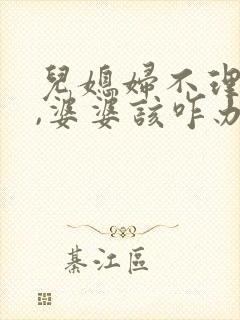 兒媳婦不理
,婆婆該咋办
綦江區